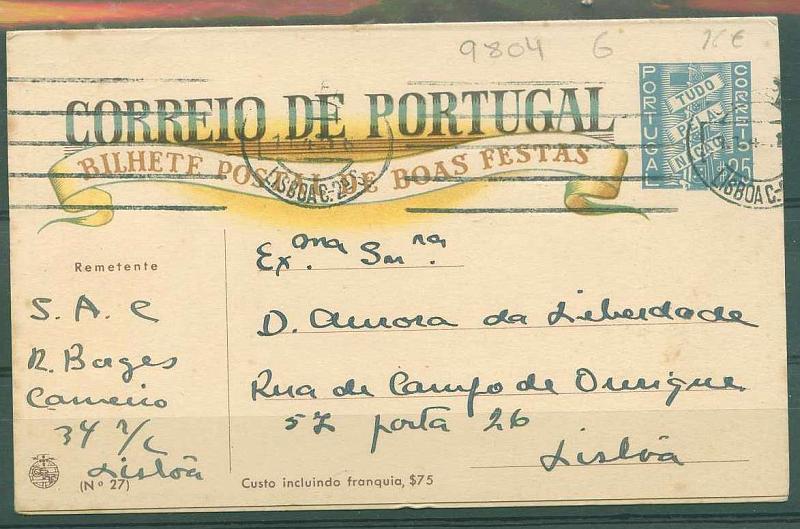 9804 6
CORREIO DE PORTUGAL
BILHETE POSTAL DE BOAS FESTAS
PORTUGAL
CORREIO
TUDO
PELA
NAÇÃO
$25
LISBOA C.
LISBOA C.
Ex.ma Snr.ra
D. Aurora da Liberdade
Rua de Campo de Ourique
57 porta 26
Lisbôa
Remetente
S. A. C
R. Borges
Carneiro
34 r/c
Lisbôa
(Nº 27)
Custo incluindo franquia, $75